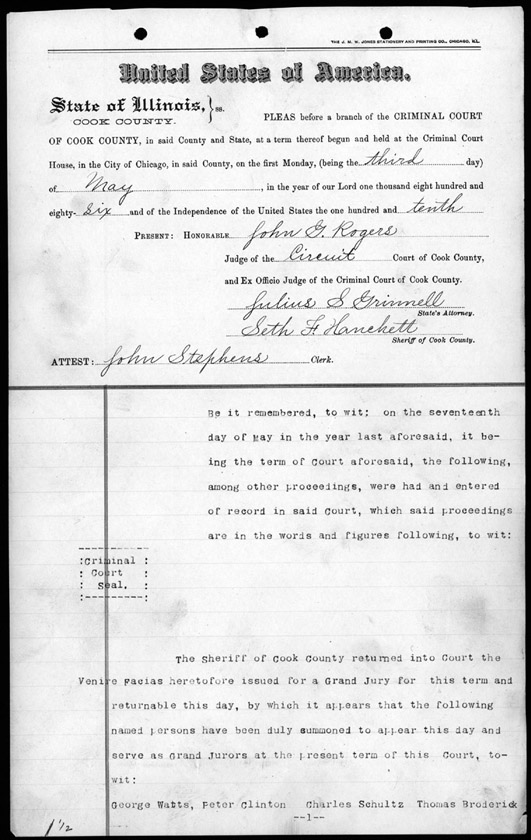 THE J. M. W. JONES STATIONERY AND PRINTING CO., CHICAGO, ILL.
United States of America.
State of Illinois, } ss.
COOK COUNTY.
PLEAS before a branch of the CRIMINAL COURT
OF COOK COUNTY, in said County and State, at a term thereof begun and held at the Criminal Court
House, in the City of Chicago, in said County, on the first Monday, (being the third day)
of May, in the year of our Lord one thousand eight hundred and
eighty-six and of the Independence of the United States the one hundred and tenth
PRESENT: HONORABLE John G. Rogers
Judge of the Circuit Court of Cook County,
and Ex Officio Judge of the Criminal Court of Cook County.
Julius S Grinnell
State's Attorney.
Seth F Hanchett
Sheriff of Cook County.
ATTEST: John Stephens Clerk.
Be it remembered, to wit: on the seventeenth
day of May in the year last aforesaid, it be-
ing the term of Court aforesaid, the following,
among other proceedings, were had and entered
of record in said Court, which said proceedings
are in the words and figures following, to wit:
:Criminal :
: Court :
: Seal. :
The Sheriff of Cook County returned into Court the
Venire Facias heretofore issued for a Grand Jury for this term and
returnable this day, by which it appears that the following
named persons have been duly summoned to appear this day and
serve as Grand Jurors at the present term of this Court, to-
wit:
George Watts, Peter Clinton Charles Schultz Thomas Broderick
--1--
1 1/2